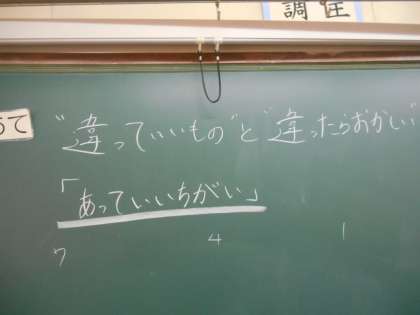 調理
めて
“違っていいもの”と“違ったらおかしい
「あっていいちがい」
7 4 1